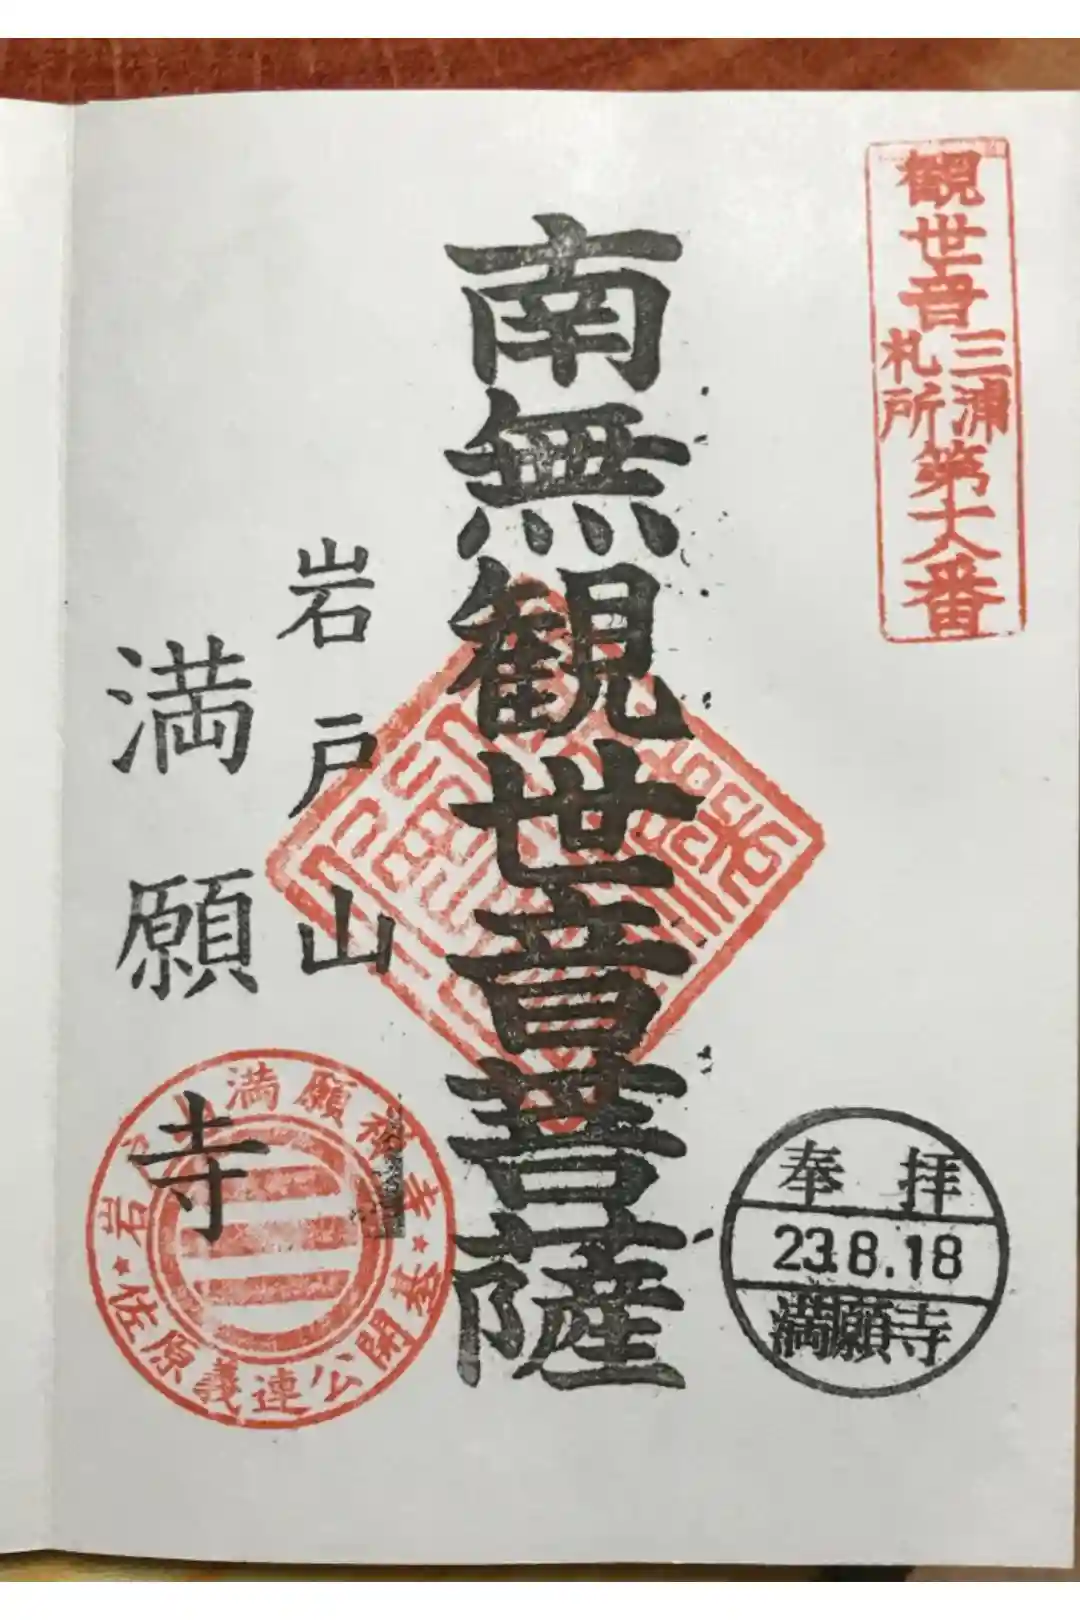 観世音
三浦
札所
第十八番
南無観世音菩薩
岩戸山
満願寺
奉拝
23.8.18
満願寺
岩戸山満願禅寺
佐原義連公開基